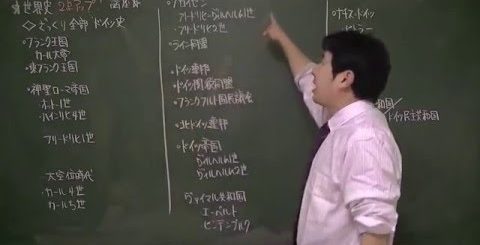 世界史
◇ざっくり全部 ドイツ史
・フランク王国
カール大帝
・東フランク王国
・神聖ローマ帝国
オットー1世
ハインリヒ4世
フリードリヒ1世
大空位時代
カール4世
カール5世
・プロイセン
フリードリヒ=ヴィルヘルム1世
フリードリヒ2世
・ライン同盟
・ドイツ連邦
・ドイツ関税同盟
・フランクフルト国民議会
・北ドイツ連邦
・ドイツ帝国
ヴィルヘルム1世
ヴィルヘルム2世
ヴァイマル共和国
エーベルト
ヒンデンブルク
・ナチス=ドイツ
ヒトラー
和国
ドイツ民主共和国